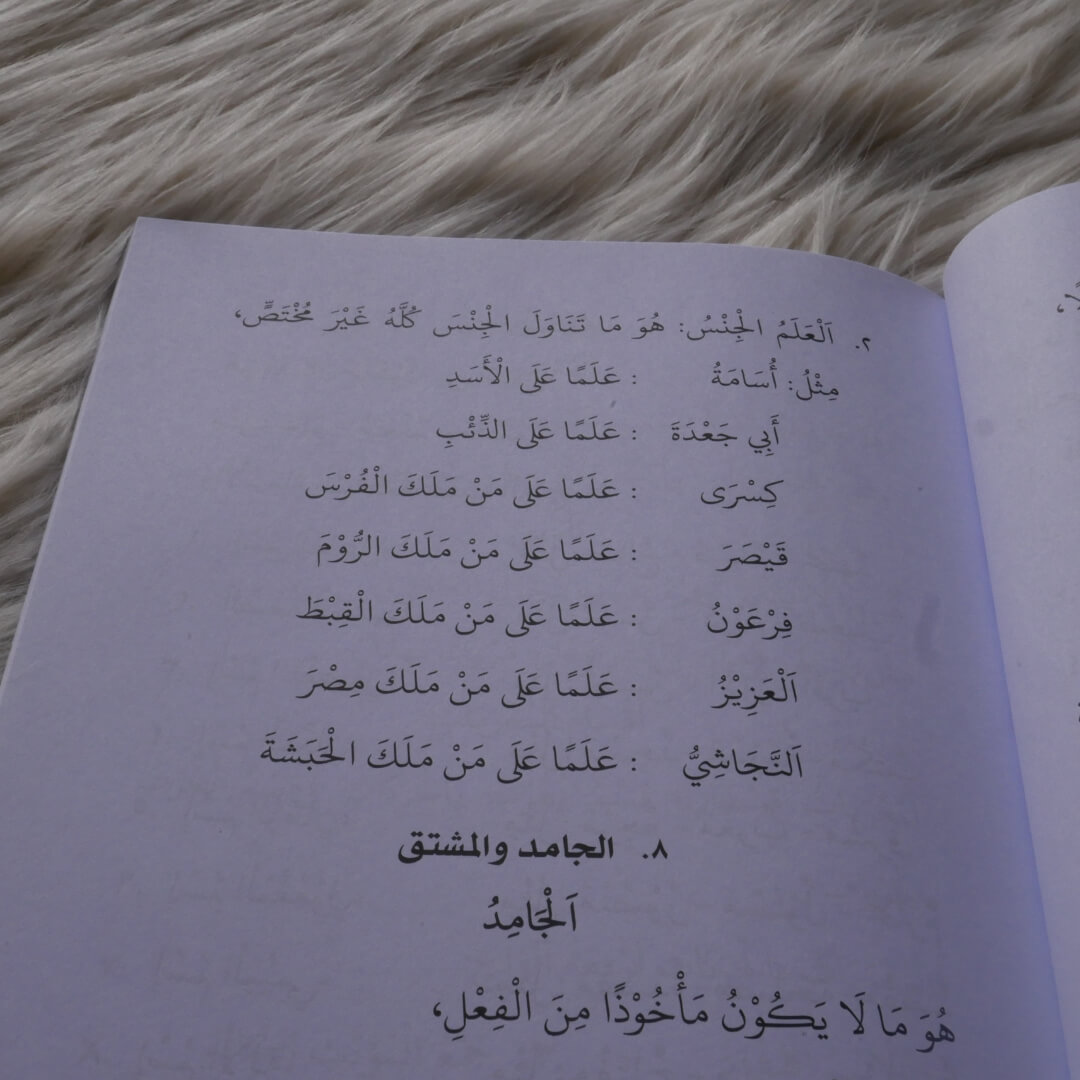 ٢. اَلْعَلَمُ الْجِنْسُ: هُوَ مَا تَنَاوَلَ الْجِنْسَ كُلَّهُ غَيْرَ مُخْتَصٍّ،
مِثْلُ: أُسَامَةُ : عَلَمًا عَلَى الْأَسَدِ
أَبِي جَعْدَةَ : عَلَمًا عَلَى الذِّئْبِ
كِسْرَى : عَلَمًا عَلَى مَنْ مَلَكَ الْفُرْسَ
قَيْصَرَ : عَلَمًا عَلَى مَنْ مَلَكَ الرُّوْمَ
فِرْعَوْنُ : عَلَمًا عَلَى مَنْ مَلَكَ الْقِبْطَ
اَلْعَزِيْزُ : عَلَمًا عَلَى مَنْ مَلَكَ مِصْرَ
اَلنَّجَاشِيُّ : عَلَمًا عَلَى مَنْ مَلَكَ الْحَبَشَةَ
٨. الجامد والمشتق
اَلْجَامِدُ
هُوَ مَا لَا يَكُوْنُ مَأْخُوْذًا مِنَ الْفِعْلِ،